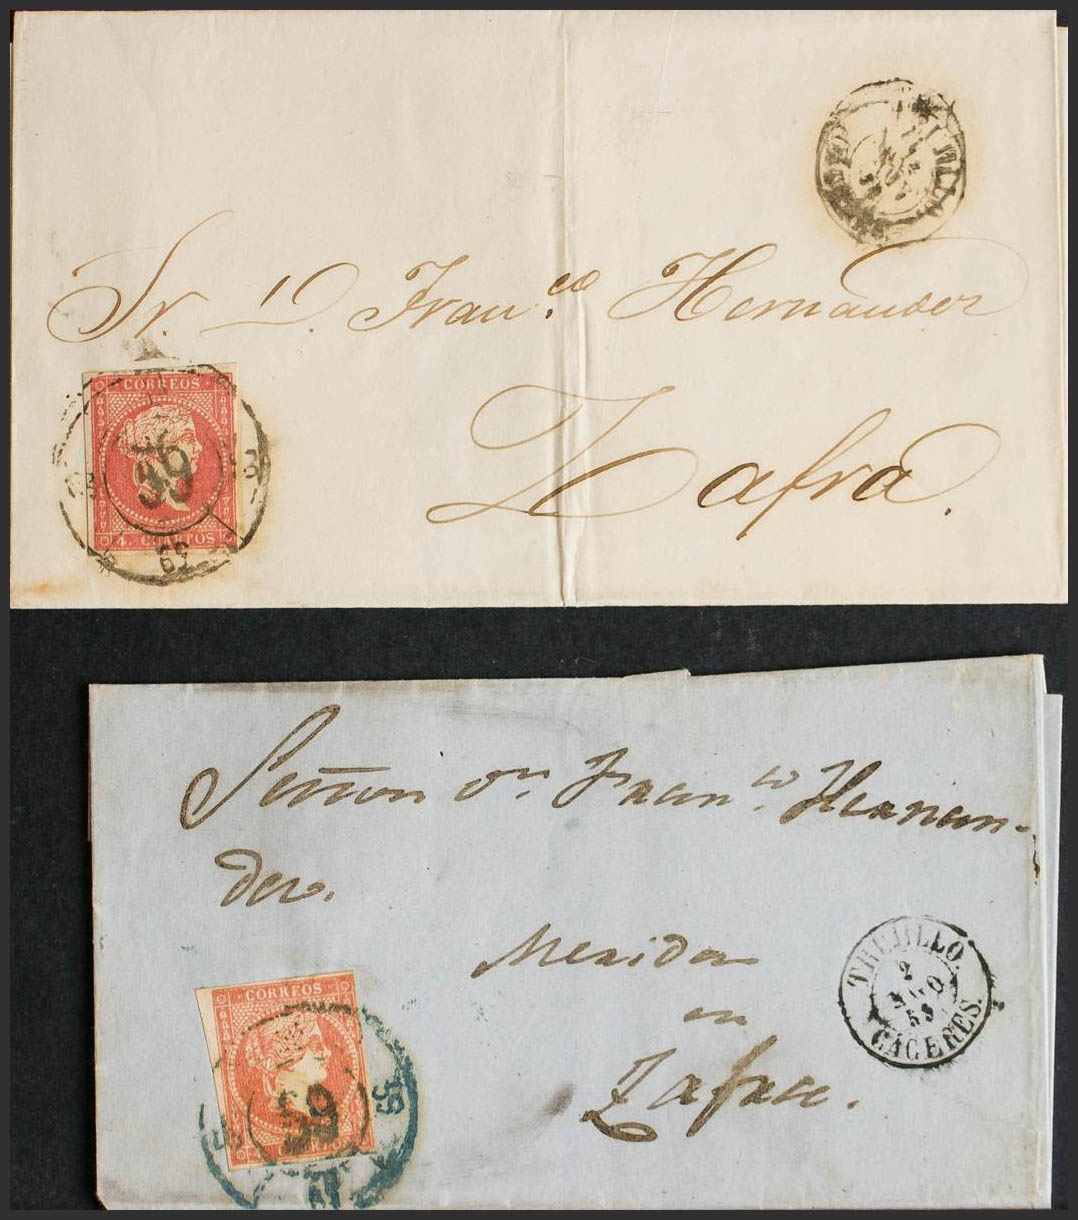 Sr. D. Fran.co Hernandez
Zafra.
CORREOS
39
4. CUARTOS
Señor Dn. Franco. Hernan-
dez.
Merida
en
Zafra.
TRUJILLO.
2
AGO
58
CÁCERES.
CORREOS
39